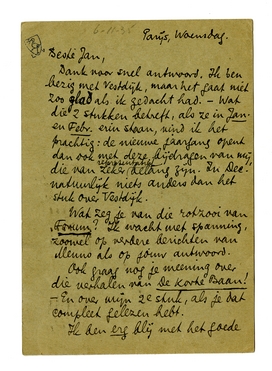 6-11-35
Parijs, Woensdag.
Beste Jan,
Dank voor snel antwoord. Ik ben
bezig met Vestdijk, maar het gaat niet
zoo glad als ik gedacht had. – Wat
die 2 stukken betreft, als ze in Jan-
en Febr. erin staan, vind ik het
prachtig: de nieuwe jaargang opent
dan ook met deze bijdragen van mij,
die van zeker belang zijn. In Dec.
natuurlijk niets anders dan het
stuk over Vestdijk.
Wat zeg je van die rotzooi van
Forum? Ik wacht met spanning,
zoowel op verdere berichten van
Menno als op jouw antwoord.
Ook graag nog je meening over
die verhalen van De Korte Baan!
– En over mijn 2e stuk, als je dat
compleet gelezen hebt.
Ik ben erg blij met het goede